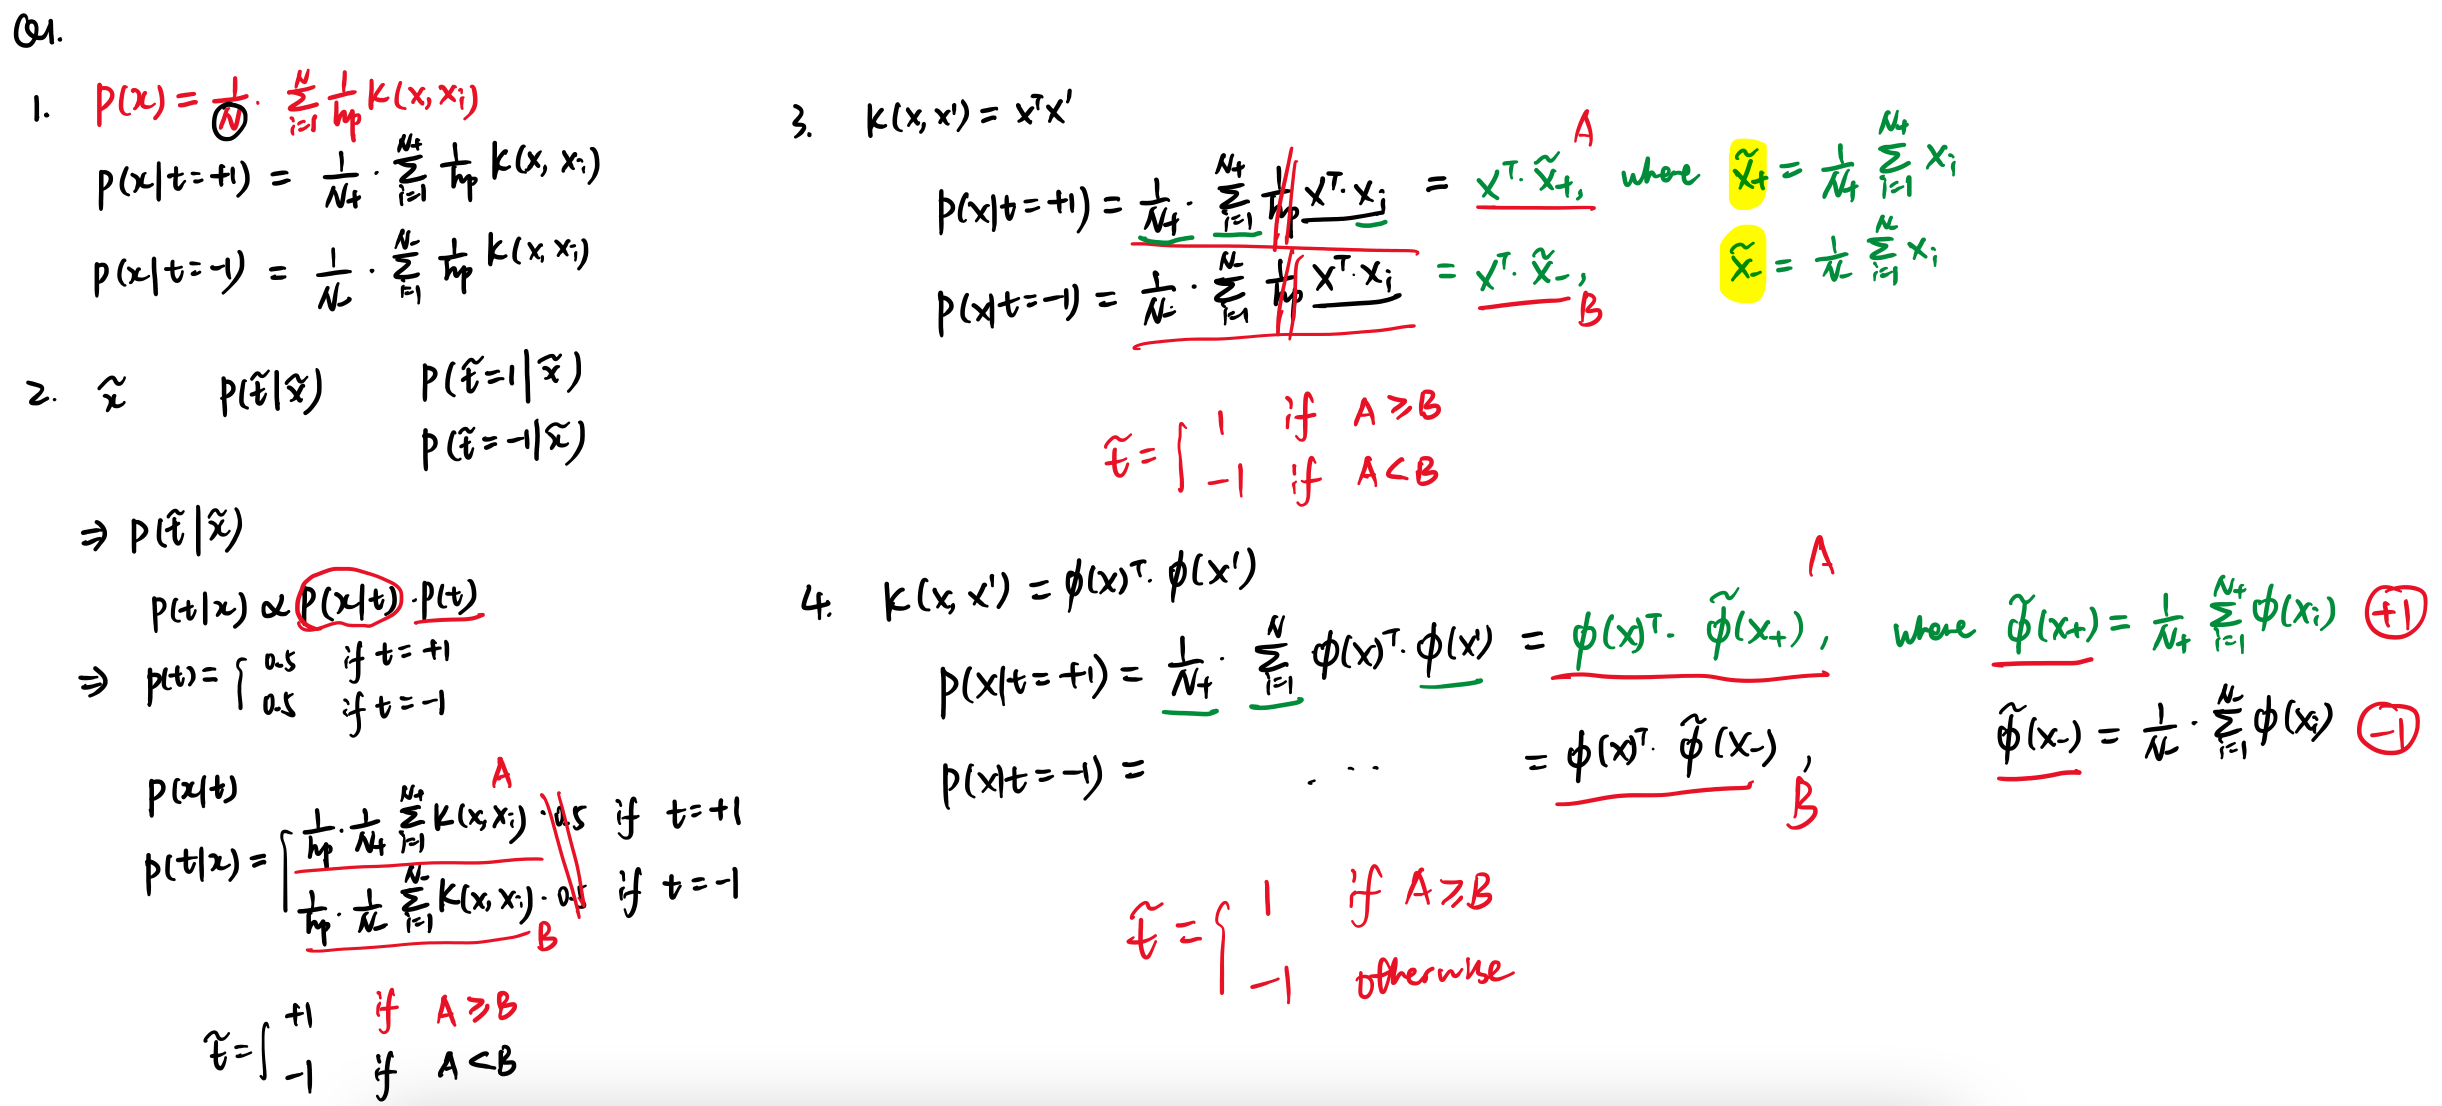 Q1.
1. p(x) = 1/N · Σ_{i=1}^{N} 1/hp k(x, x_i)
p(x|t=+1) = 1/N+ · Σ_{i=1}^{N+} 1/hp k(x, x_i)
p(x|t=-1) = 1/N- · Σ_{i=1}^{N-} 1/hp k(x, x_i)
2. x̃ p(t̃|x̃) p(t̃=1|x̃)
p(t̃=-1|x̃)
⇒ p(t̃|x̃)
p(t|x) ∝ p(x|t) · p(t)
⇒ p(t) = { 0.5 if t=+1
0.5 if t=-1
p(x|t)
A
p(t|x) = { 1/hp · 1/N+ Σ_{i=1}^{N+} k(x, x_i) · 0.5 if t=+1
1/hp · 1/N- Σ_{i=1}^{N-} k(x, x_i) · 0.5 if t=-1
B
t̃ = { +1 if A ≥ B
-1 if A < B
3. k(x, x') = x^T x'
A
p(x|t=+1) = 1/N+ · Σ_{i=1}^{N+} 1/hp x^T · x_i = x^T · x̃+, where x̃+ = 1/N+ Σ_{i=1}^{N+} x_i
p(x|t=-1) = 1/N- · Σ_{i=1}^{N-} 1/hp x^T · x_i = x^T · x̃-, x̃- = 1/N- Σ_{i=1}^{N-} x_i
B
t̃ = { 1 if A ≥ B
-1 if A < B
4. k(x, x') = φ(x)^T · φ(x')
A
p(x|t=+1) = 1/N+ · Σ_{i=1}^{N} φ(x)^T · φ(x') = φ(x)^T · φ̃(x+), where φ̃(x+) = 1/N+ Σ_{i=1}^{N+} φ(x_i) +1
p(x|t=-1) = ... = φ(x)^T · φ̃(x-), φ̃(x-) = 1/N- · Σ_{i=1}^{N-} φ(x_i) -1
B
t̃ = { 1 if A ≥ B
-1 otherwise